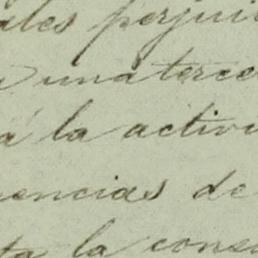 ales perjui
una terce
á la activi
encias de
ta la conse